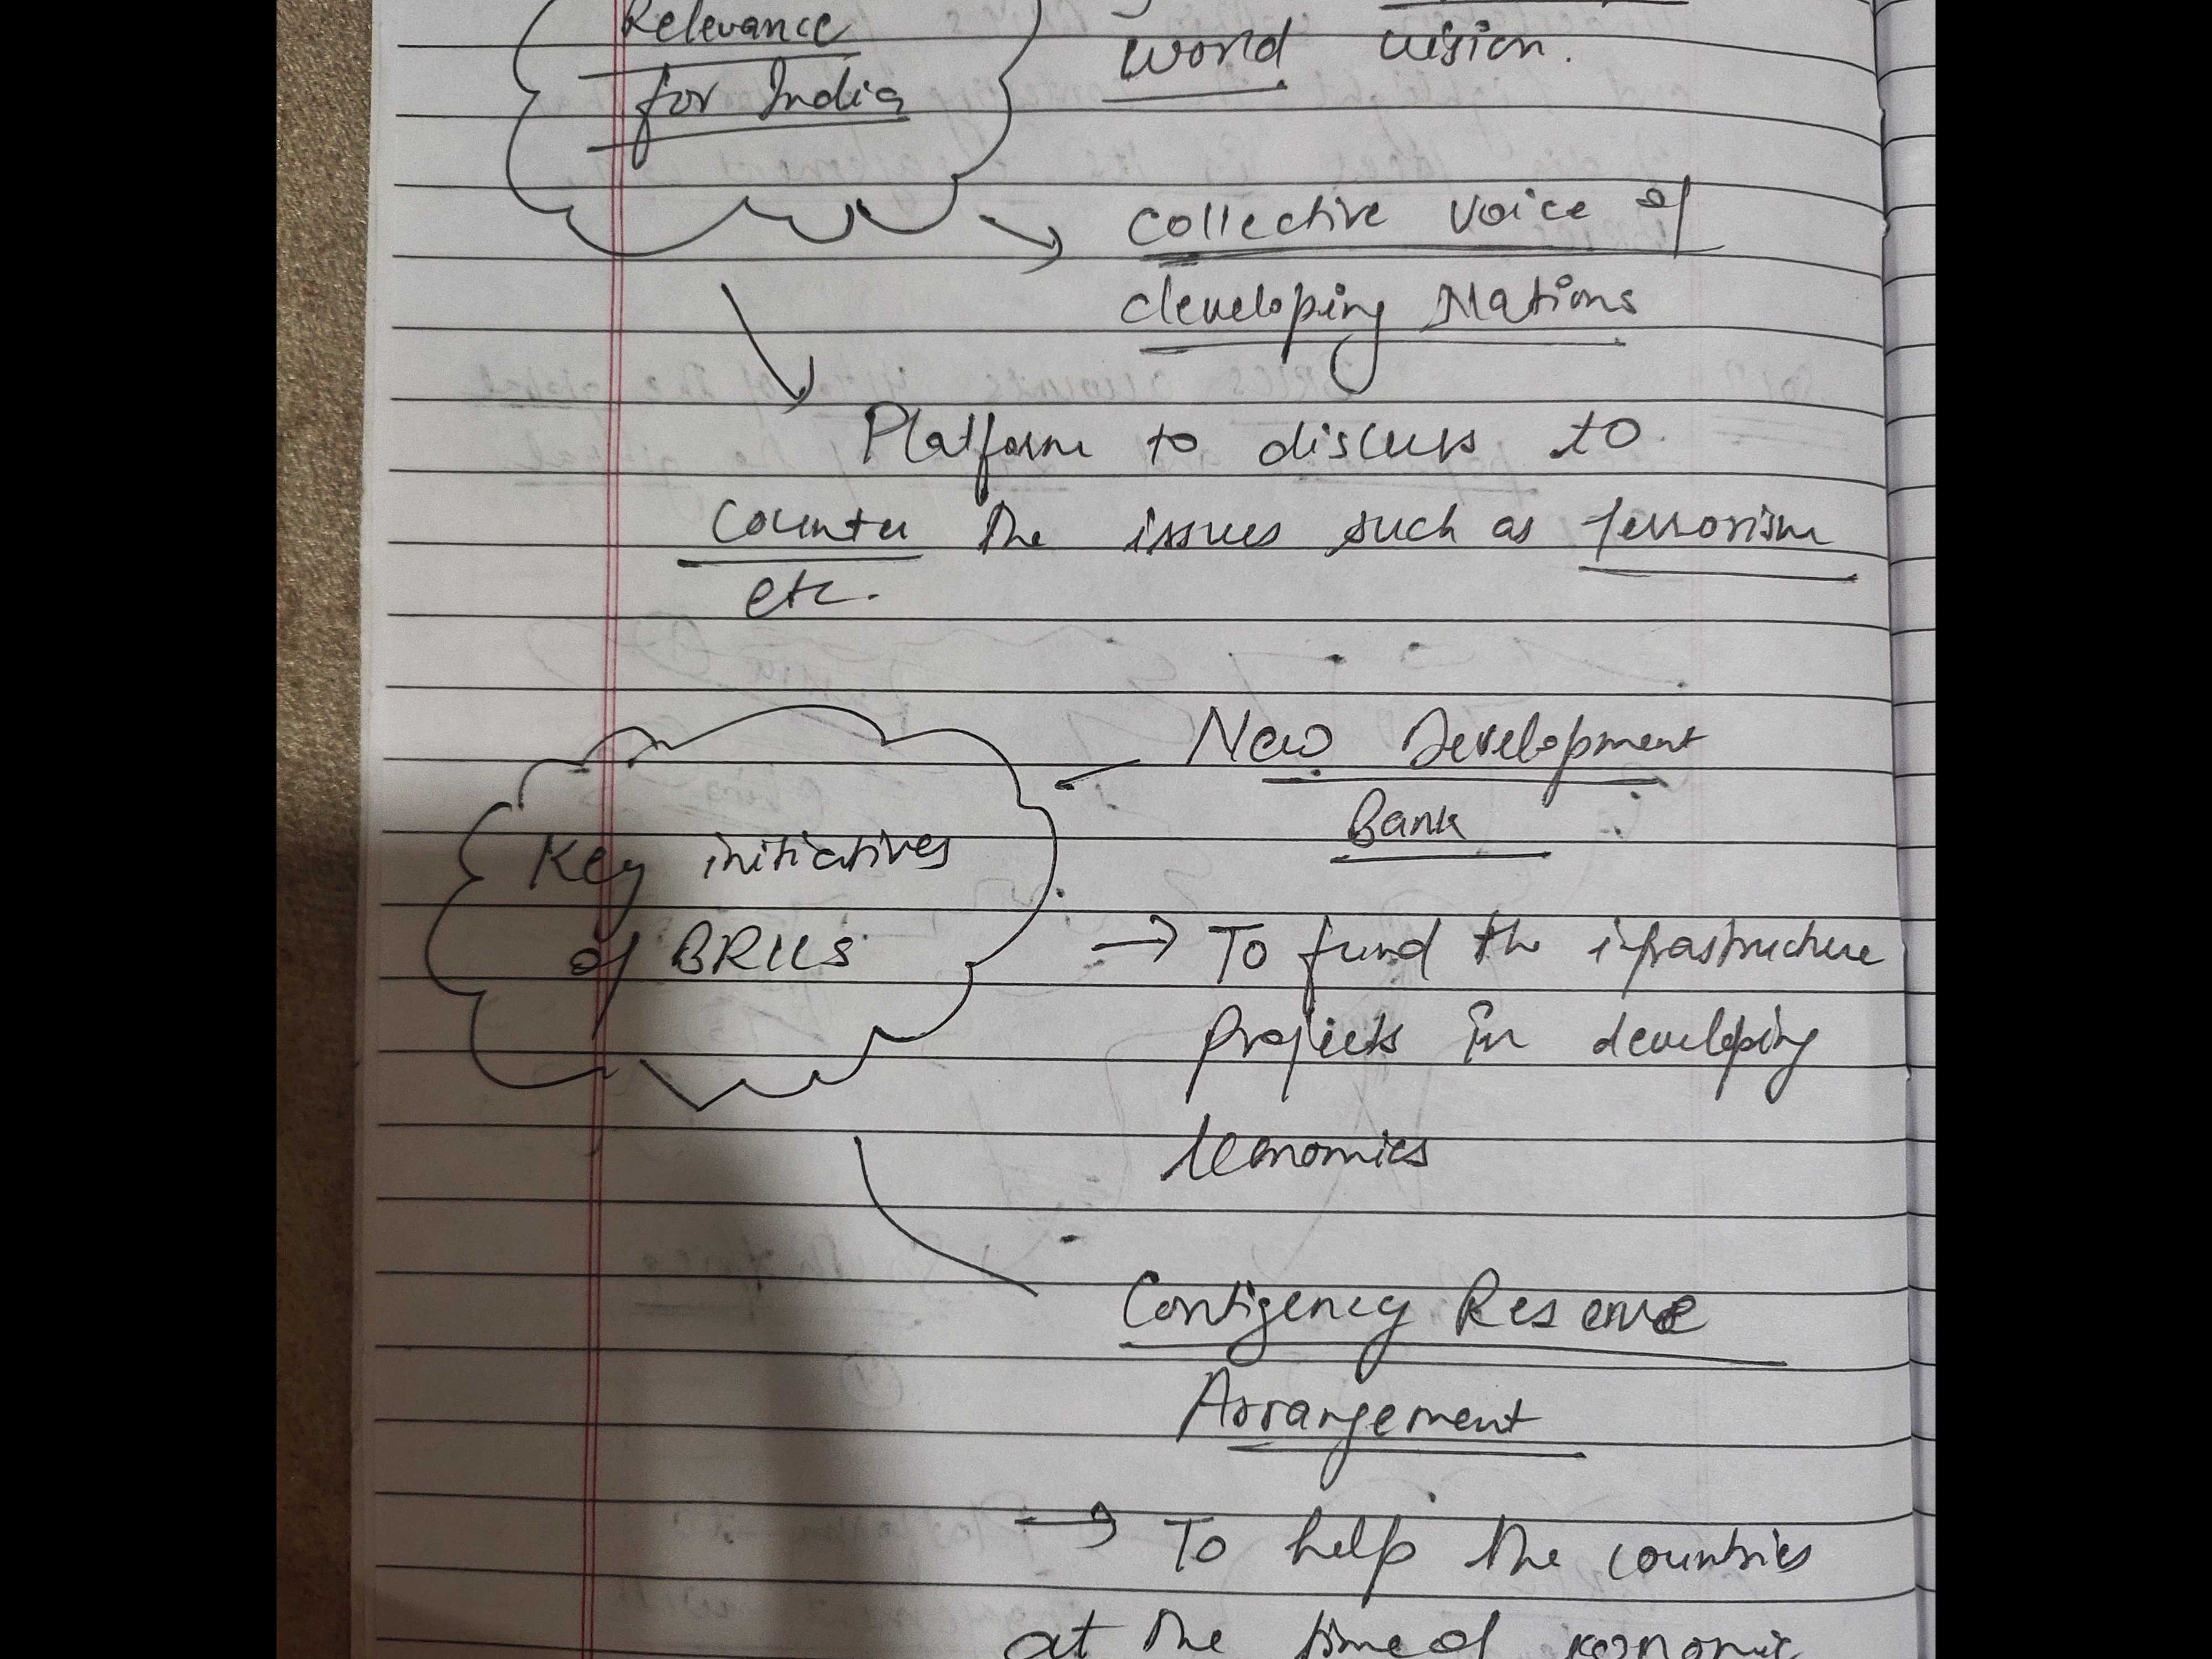 Relevance
for India
world vision.
Collective Voice of
developing Nations
Platform to discuss to
Counter the issues such as terrorism
etc.
New Development
Bank
Key initiatives
of BRICS
To fund the infrastructure
projects in developing
economies
Contigency Reserve
Arrangement
To help the countries
at the time of economic